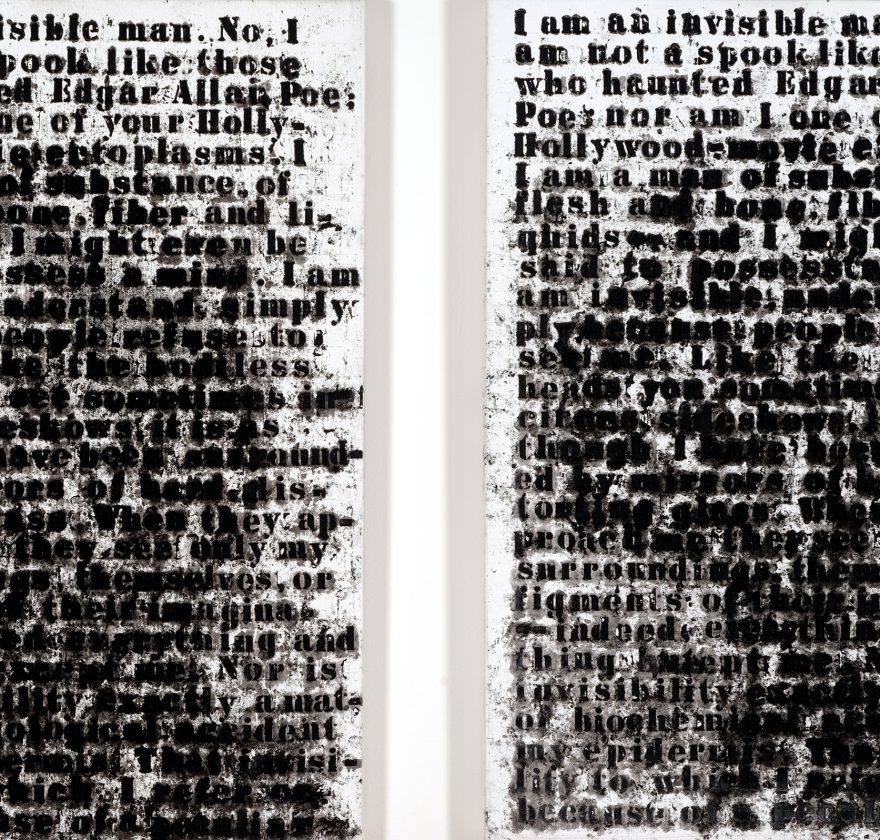 isible man. No, I
pook like those
ed Edgar Allan Poe;
ne of your Holly-
ectoplasms. I
of substance, of
bone, fiber and li-
I might even be
ssess a mind. I am
nderstand, simply
people refuse to
ke the bodiless
see sometimes in
eshows, it is as
have been surround-
ors of hard, dis-
ass. When they ap-
they see only my
ngs, themselves, or
f their imagina-
ed, everything and
except me. Nor is
ility exactly a mat-
iological accident
ermis. That invisi-
which I refer oc
se of a peculiar
I am an invisible ma
am not a spook like
who haunted Edgar
Poe; nor am I one o
Hollywood-movie e
I am a man of subst
flesh and bone, fib
quids - and I migh
said to possess a
am invisible, unde
ply because people
see me. Like the
heads you sometim
circus sideshows,
though I have been
ed by mirrors of h
torting glass. Whe
proach me they see
surroundings, them
figments of their i
- indeed, everythin
thing except me. N
invisibility exactly
of biochemical ac
my epidermis. Tha
lity to which I refe
because of a pecul